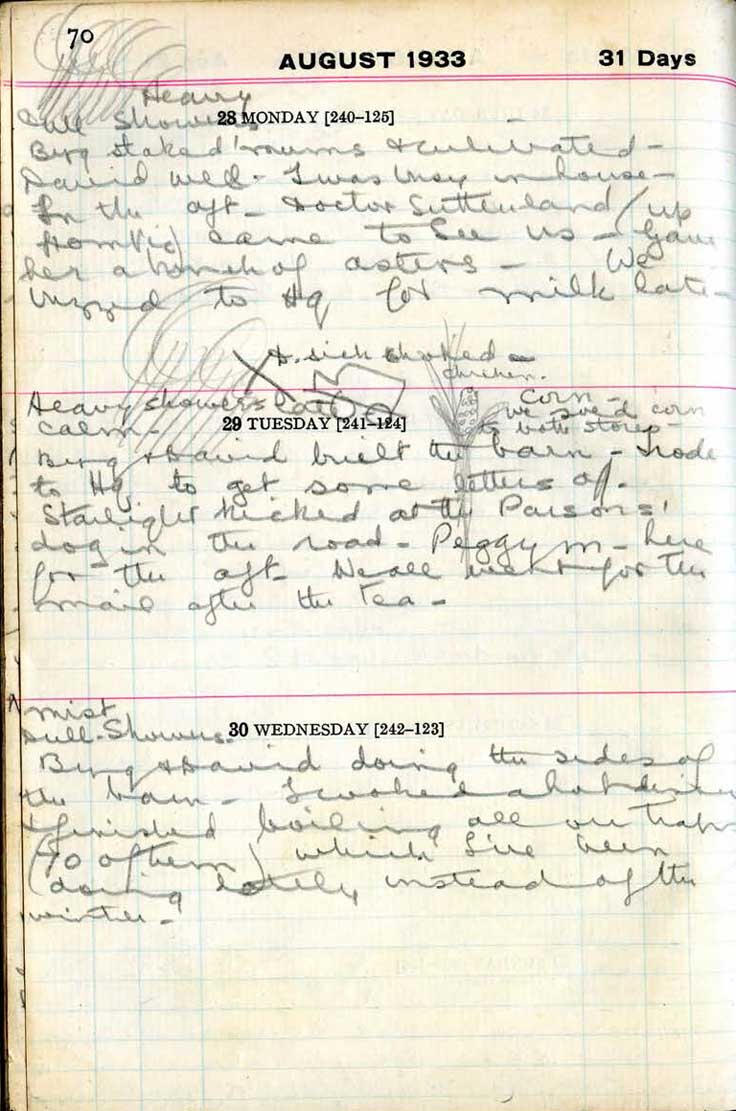 70
AUGUST 1933 31 Days
Heavy
Showers 28 MONDAY [240–125]
staked 'mums & cultivated –
David well. I was busy in house –
In the aft – Doctor /up
from came to see us – Gave
her a bunch of asters – We
to Hq for milk late –
sick choked –
chicken.
Heavy showers late Corn –
we corn
calm – 29 TUESDAY [241–124] to both stores –
& David built the barn – I rode
to Hq to get some letters off.
Starlight kicked at the Parsons'
dog in the road – Peggy m – here
for the aft – We all went for the
mail after the Tea –
mist
Dull. Showers. 30 WEDNESDAY [242–123]
& David doing the sides of
the barn – I cooked a hot dinner
& finished boiling all our traps
(70 of them) which I've been
doing lately instead of the
winter –